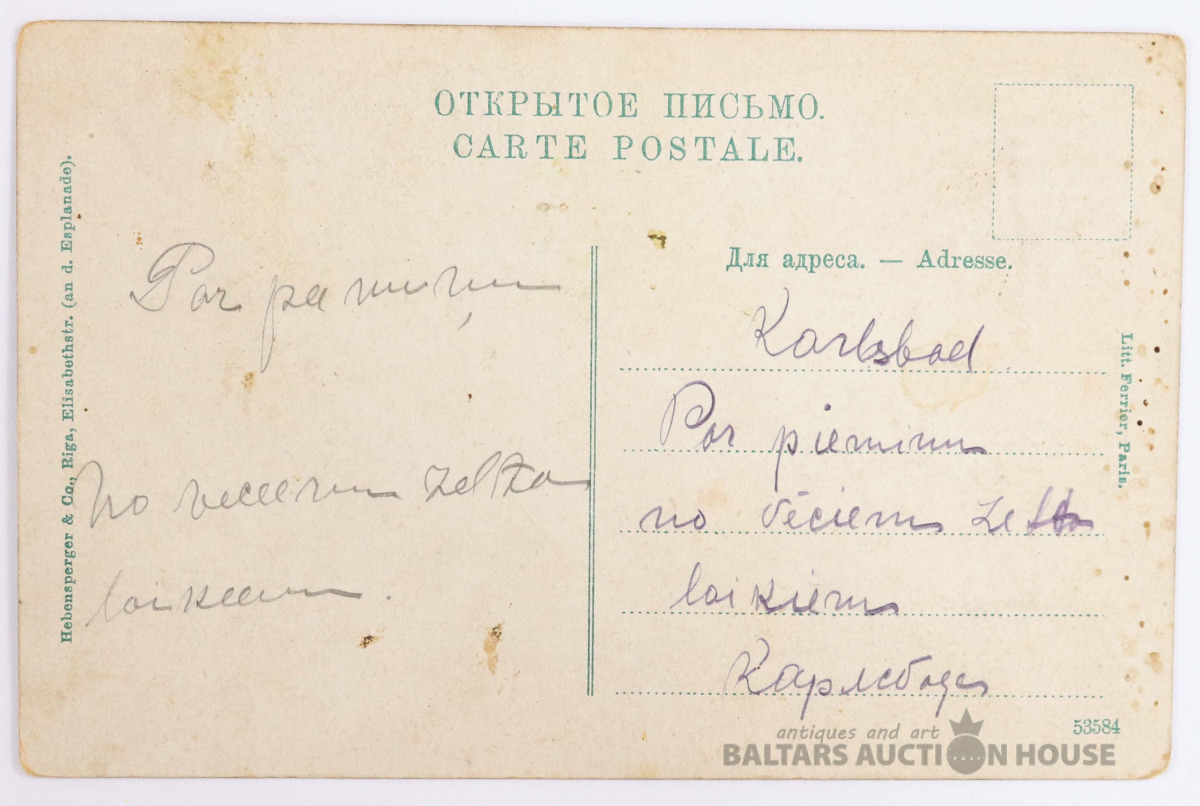 ОТКРЫТОЕ ПИСЬМО.
CARTE POSTALE.
Hebensperger & Co., Riga, Elisabethstr. (an d. Esplanade).
Par pa
no veceem zelta
laikeem.
Для адреса. — Adresse.
Karlsbad
Par piemiņu
no vēciem zelta
laikiem
Карлсбаде
Litt. Ferrier, Paris.
53584
antiques and art
BALTARS AUCTION HOUSE